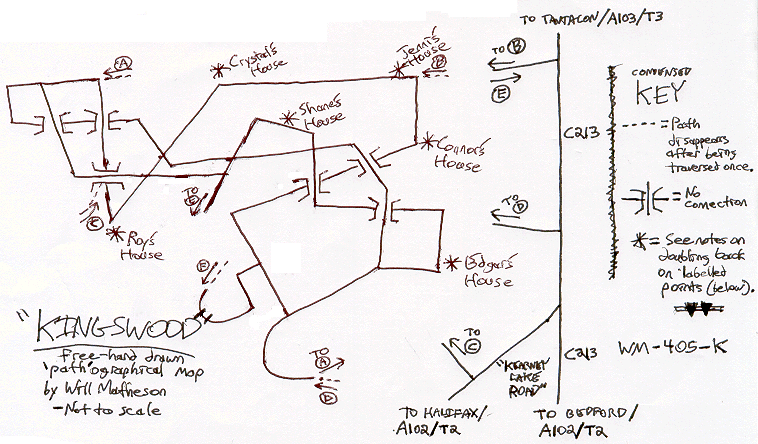 TO TANTALON/A103/T3
TO
B
E
CONDENSED
KEY
C213
---- = Path
disappears
after being
traversed once.
= No
connection
* = See notes on
doubling back
on labelled
points (below).
TO
D
TO
C
C213
WM-405-K
"KEARNEY
LAKE
ROAD"
TO HALIFAX/
A102/T2
TO BEDFORD/
A102/T2
A
Crystal's
House
Jenni's
House
B
Shane's
House
Connor's
House
TO
E
C
Roy's
House
E
Edgar's
House
"KINGSWOOD"
Free-hand drawn
'path'ographical map
by Will Matheson
-Not to scale
TO
A
D